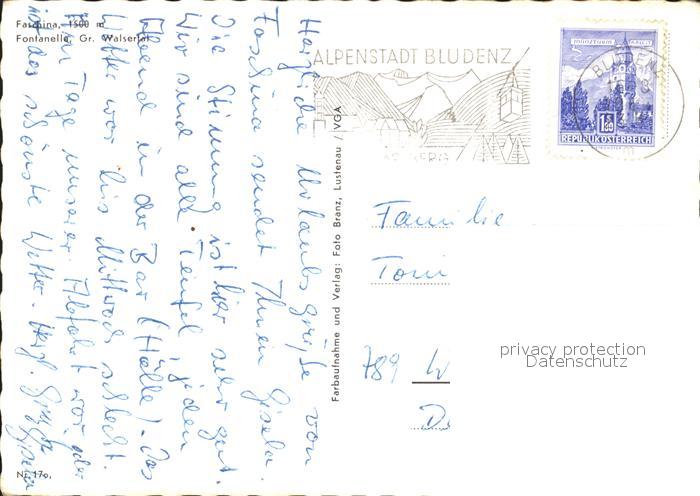 Faschina, 1500 m
Fontanella, Gr. Walsertal
Herzliche Urlaubsgrüße von
Faschina sendet Ihnen Gisela.
Die Stimmung ist hier sehr gut.
Wir sind alle Teufel jeden
Abend in der Bar (Hölle). Das
Wetter war bis Mittwoch schlecht.
Am Tage unserer Abfahrt war
das schönste Wetter. Herzl. Grüße
Gisela
Nr. 170.
Farbaufnahme und Verlag: Foto Branz, Lustenau / VGA
ALPENSTADT BLUDENZ
BLUDENZ
MÜNZTURM HALL i. T.
1.80
REPUBLIK ÖSTERREICH
Familie
Toni
789 W
D
privacy protection
Datenschutz